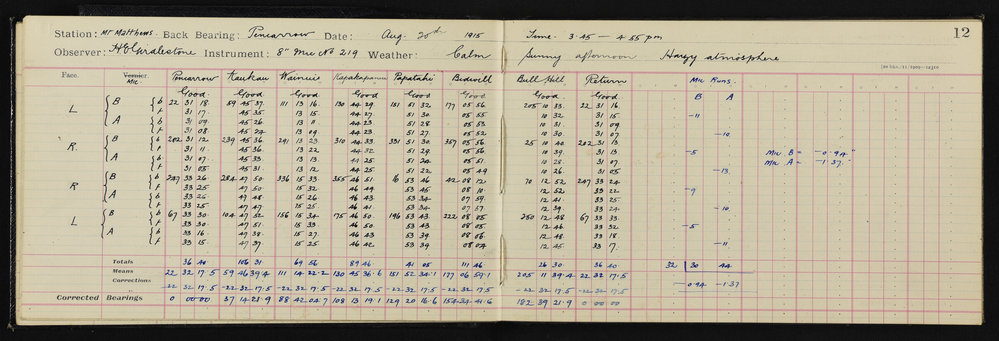 12
Station: Mt Matthews. Back Bearing: Pencarrow Date: Aug 20th 1915 Time. 3·45 — 4·55 pm
Observer: Instrument: 8" Mic No 219 Weather: Calm Sunny afternoon Hazy atmosphere
Face. Vernier. Mic Pencarrow Kaukau Wainuie Kapakapanui Papatahi Bedwell Bull Hill Return Mic Runs.
Good Good Good Good Good Good Good Good B A
L B b 22 31 18. 59 45 37. 111 13 16. 130 44 29 151 51 32 177 05 56 205 10 33. 22 31 16
f 31 17. 45 35 13 15 44 27 51 30. 05 55 10 32 31 15 -11
A b 31 09 45 26 13 11 44 23 51 28 05 53 10 31 31 09
f 31 08 45 24 13 09 44 23 51 27. 05 52 10 30 31 07 -10.
R B b 202 31 12 239 45 36 291 13 23 310 44 33 331 51 30 357 05 56 25 10 40 202 31 13
f 31 11 45 36 13 22 44 32 51 29 05 56 10 39. 31 13 -5 Mic B = -0.94"
A b 31 07. 45 33 13 13. 44 25 51 24 05 51 10 28. 31 07. Mic A = -1.37"
f 31 05 45 31. 13 12 44 25 51 22 05 49 10 26. 31 05 -13.
R B b 247 33 26 284 47 50 336 15 33 355 46 51 16 53 46 42 08 12 70 12 52 247 33 24
f 33 25 47 50 15 32 46 49 53 45 08 10 12 52 33 22 -9
A b 33 26 47 48 15 26 46 43 53 34 07 59 12 41 33 25
f 33 25 47 47 15 25 46 41 53 34 07 57 12 39 33 24 -10
L B b 67 33 30 104 47 52 156 15 34 175 46 50. 196 53 43 222 08 05 250 12 48 67 33 33.
f 33 30 47 51 15 33 46 50 53 43 08 05 12 46 33 32 -5
A b 33 16 47 38 15 27 46 43 53 39 08 06 12 48 33 18
f 33 15. 47 37 15 25 46 42 53 39 08 04 12 45 33 17. -11
Totals 36 40 106 31 69 56 89 46 41 05 111 46 26 30 36 40 32 30 44
Means 22 32 17.5 59 46 39.4 111 14 22.2 130 45 36.6 151 52 34.1 177 06 59.1 205 11 39.4 22 32 17.5
Corrections -0.94 -1.37
-22 32 17.5 -22 32 17.5 -22 32 17.5 -22 32 17.5 -22 32 17.5 -22 32 17.5 -22 32 17.5 -22 32 17.5
Corrected Bearings 0 00 00 37 14 21.9 88 42 04.7 108 13 19.1 129 20 16.6 154 34 41.6 182 39 21.9 0 00 00